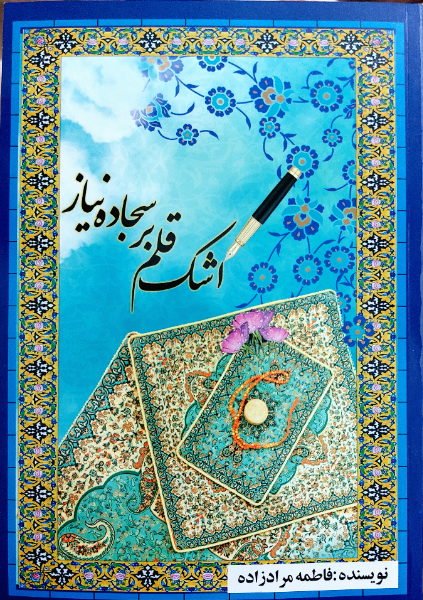 اشک قلم بر سجاده نیاز
نویسنده:فاطمه مرادزاده